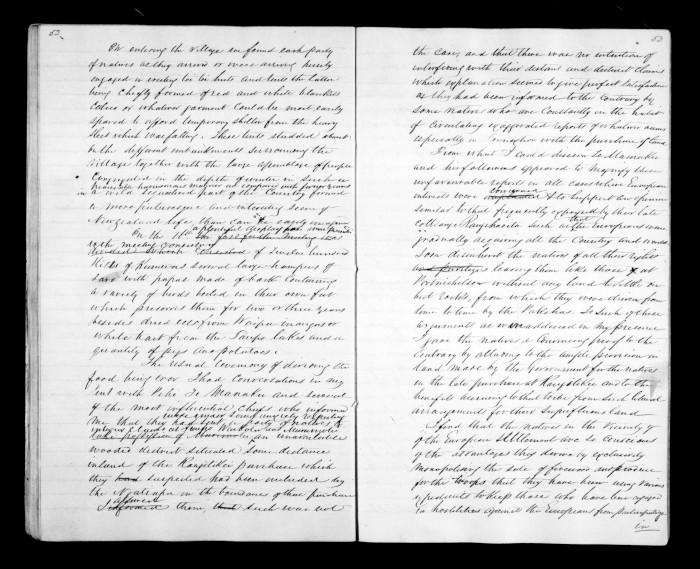 52
On entering the village we found each party
of natives as they arrive or were arriving busily
engaged in erecting huts and tents the latter
being chiefly formed of red and white blankets
Calico or whatever garment could be most easily
spared to afford temporary shelter from the heavy
sleet which was falling. These tents studded about
in the different embankments surrounding the
village together with the large assemblage of people
Congregated in the depth of winter in such a
in a wild secluded part of the Country formed
a more picturesque and interesting scene of
New Zealand life than can be easily imagined
On the 11th
the meeting
Kits of Kumeras several large hampers of
Taro with papas made of bark containing
a variety of birds boiled in their own fat
which preserves them for two or three years
besides dried eels from Waipa
white bait from the Taupo lakes and a
quantity of pigs and potatoes.
The usual ceremony of dividing the
food being over I had conversations in my
tent with Pehi Te Manaku and several
of the most influential Chiefs who informed
me that they had sent a party of natives to
take possession of an
wooded district situated some distance
inland of the Rangitikei purchase which
they had suspected had been included by
the Ngatiapa in the boundaries of their purchase
I informed them, that such was not
53
the case, and that there was no intention of
interfering with their distant and distinct claims
which explanation seemed to give perfect satisfaction
as they had been informed to the contrary by
some natives who are constantly in the habit
of circulating exaggerated reports of whatever occurs
especially in connection with the purchase of land.
From what I could discern Te Mamaku
and his followers appeared to magnify these
unfavourable reports in all cases where European
interests were concerned & to support an opinion
similar to that frequently expressed by their late
colleague Rangihaeata such as the Europeans were
gradually acquiring all the Country and would
soon disinherit the natives of all their rights
leaving them like those at
Port Nicholson without any land to settle on
but rocks, from which they were driven from
time to time by the Pakehas. To such of these
arguments as were adduced in my presence
I gave the natives a convincing proof to the
contrary by alluding to the ample provision in
land made by the Government for the natives
in the late purchase at Rangitikei and to the
benefits accruing to that tribe from such liberal
arrangement for their superfluous land.
I find that the natives in the vicinity
of the European settlement are so conscious
of the advantages they derive by exclusively
monopolizing the sale of firewood and produce
for the troops that they have been using various
expedients to keep those who have been opposed
in hostilities against the Europeans from participating
in